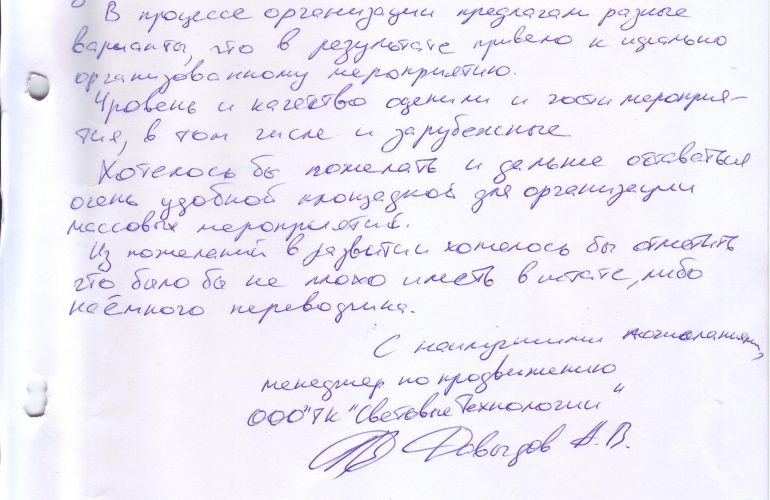 В процессе организации предлагали разные
варианты, что в результате привело к идеально
организованному мероприятию.
Уровень и качество оценили и гости мероприя-
тия, в том числе и зарубежные
Хотелось бы пожелать и дальше оставаться
очень удобной площадкой для организации
массовых мероприятий.
Из пожеланий в развитии хотелось бы отметить
что было бы не плохо иметь в штате, либо
наёмного переводчика.
С наилучшими пожеланиями,
менеджер по продвижению
ООО "ТК "Световые Технологии"
Давыдов А.В.